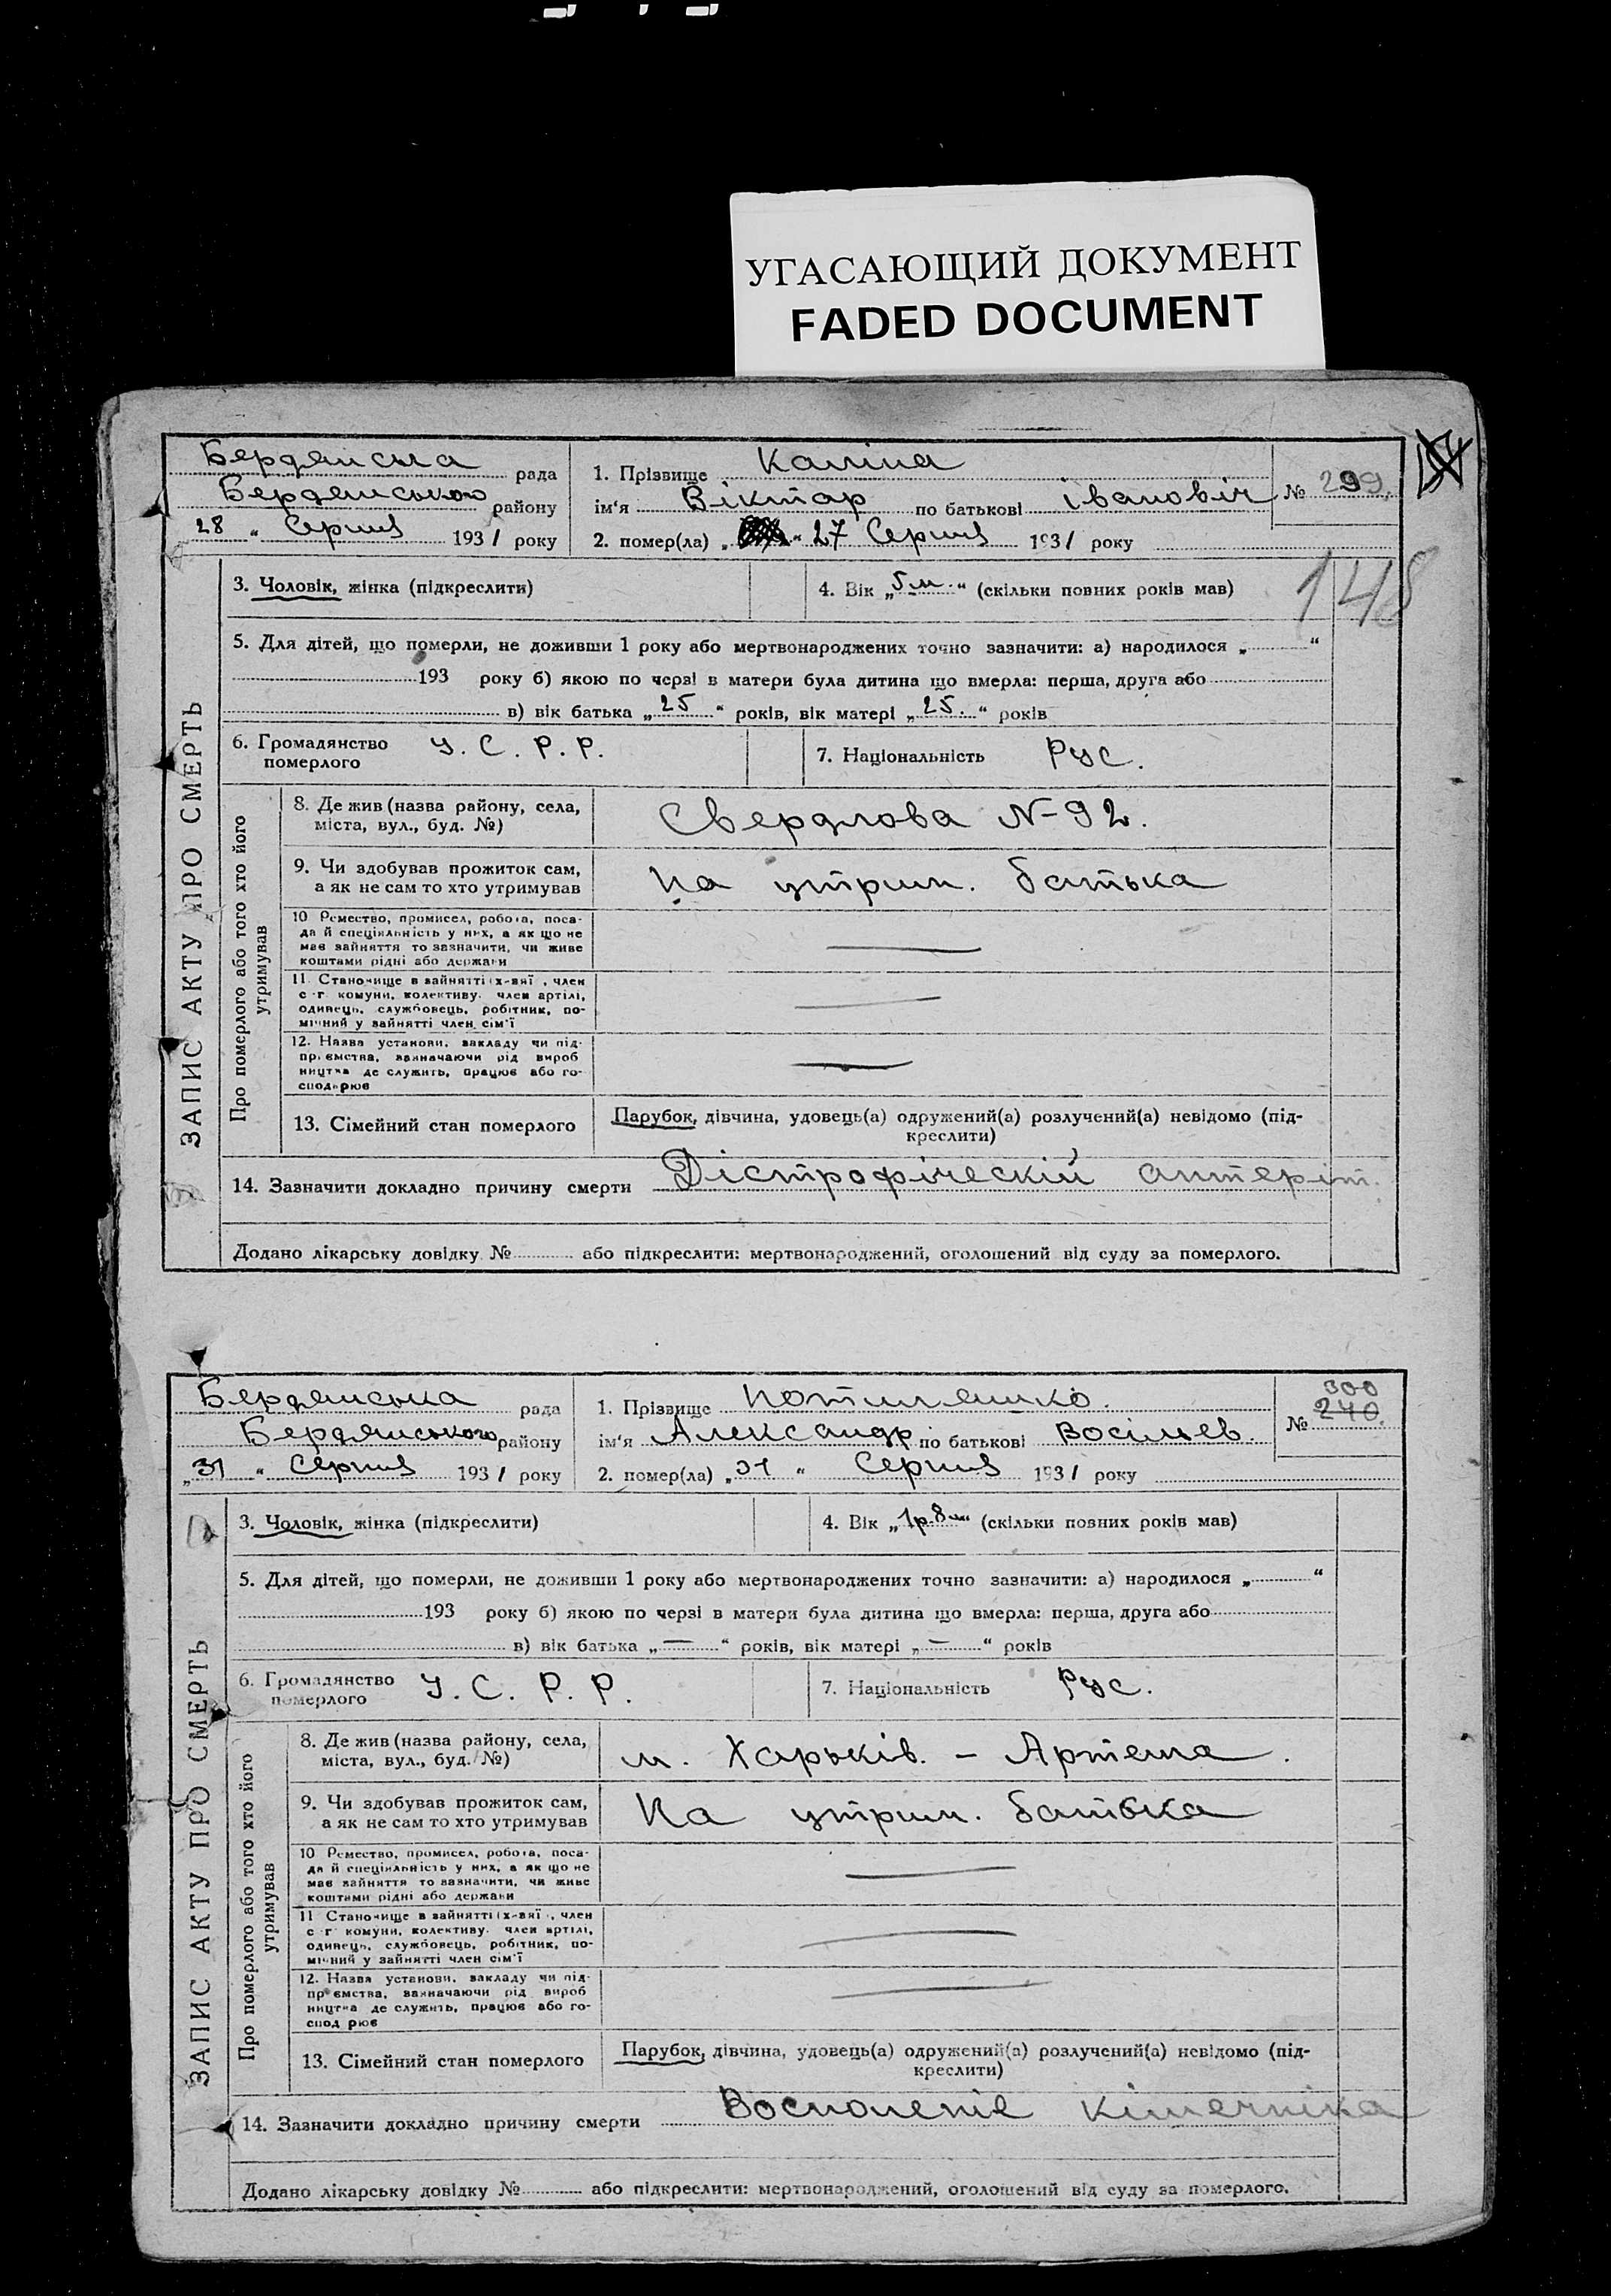 УГАСАЮЩИЙ ДОКУМЕНТ
FADED DOCUMENT
Бердянська рада
Бердянського району
28 " Серпня 1931 року
1. Прізвище Каліна
ім'я Віктар по батькові івановіч
2. помер(ла) „ " 27 Серпня 1931 року
№ 299
148
ЗАПИС АКТУ ПРО СМЕРТЬ
3. Чоловік, жінка (підкреслити)
4. Вік „5 м." (скільки повних років мав)
5. Для дітей, що померли, не доживши 1 року або мертвонароджених точно зазначити: а) народилося „ "
193 року б) якою по черзі в матери була дитина що вмерла: перша, друга або
в) вік батька „25" років, вік матері „25." років
6. Громадянство
померлого
У. С. Р. Р.
7. Національність Рус.
Про померлого або того хто його
утримував
8. Де жив (назва району, села,
міста, вул., буд. №)
Свердлова N-92.
9. Чи здобував прожиток сам,
а як не сам то хто утримував
На утрим. батька
10 Ремество, промисел, робота, поса-
да й спеціяльність у них, а як що не
має зайняття то зазначити, чи живе
коштами рідні або держави
11. Становище в зайнятті (х-вяї, член
с-г комуни, колективу, член артілі,
одинець, службовець, робітник, по-
мічний у зайнятті член сім'ї
12. Назва установи, закладу чи під-
приємства, зазначаючи рід вироб
ництва де служить, працює або го-
сподарює
13. Сімейний стан померлого
Парубок, дівчина, удовець(а) одружений(а) розлучений(а) невідомо (під-
креслити)
14. Зазначити докладно причину смерти Дістрофіческій антеріт.
Додано лікарську довідку № або підкреслити: мертвонароджений, оголошений від суду за померлого.
Бердянська рада
Бердянського району
„31 " Серпня 1931 року
1. Прізвище
ім'я Александр по батькові Васільев.
2. помер(ла) „31 " Серпня 1931 року
300
№ 240.
ЗАПИС АКТУ ПРО СМЕРТЬ
3. Чоловік, жінка (підкреслити)
4. Вік „1р. 8м" (скільки повних років мав)
5. Для дітей, що померли, не доживши 1 року або мертвонароджених точно зазначити: а) народилося „ "
193 року б) якою по черзі в матери була дитина що вмерла: перша, друга або
в) вік батька „—" років, вік матері „—" років
6. Громадянство
померлого
У. С. Р. Р.
7. Національність Рус.
Про померлого або того хто його
утримував
8. Де жив (назва району, села,
міста, вул., буд. №)
м. Харьків. - Артема.
9. Чи здобував прожиток сам,
а як не сам то хто утримував
На утрим. батька
10 Ремество, промисел, робота, поса-
да й спеціяльність у них, а як що не
має зайняття то зазначити, чи живе
коштами рідні або держави
11 Становище в зайнятті (х-вяї, член
с-г комуни, колективу, член артілі,
одинець, службовець, робітник, по-
мічний у зайнятті член сім'ї
12. Назва установи, закладу чи під-
приємства, зазначаючи рід вироб
ництва де служить, працює або го-
сподарює
13. Сімейний стан померлого
Парубок, дівчина, удовець(а) одружений(а) розлучений(а) невідомо (під-
креслити)
14. Зазначити докладно причину смерти Восполеніе кішечніка
Додано лікарську довідку № або підкреслити: мертвонароджений, оголошений від суду за померлого.